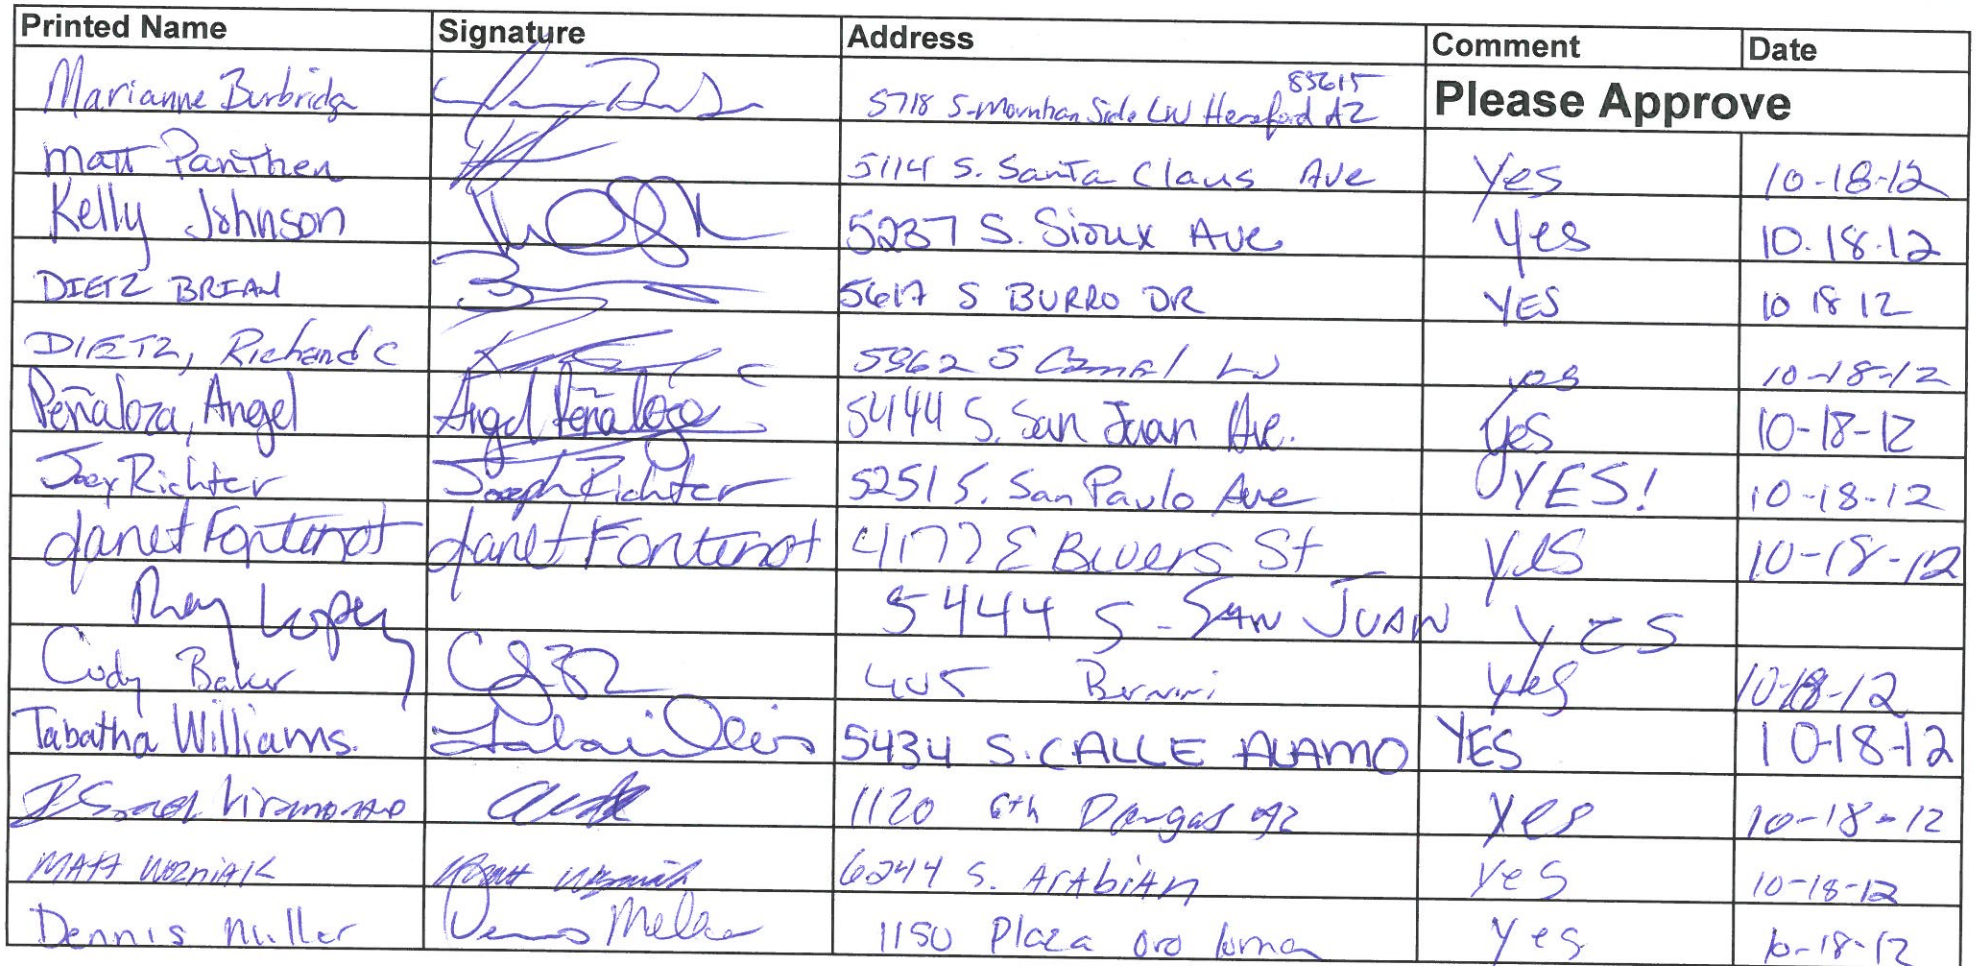 Printed Name Signature Address Comment Date
Marianne Burbridge 5718 S. Mountain Side LN Hereford AZ 85615 Please Approve
Matt Panthen 5114 S. Santa Claus Ave Yes 10-18-12
Kelly Johnson 5237 S. Sioux Ave Yes 10.18.12
DIETZ BRIAN 5617 S BURRO DR YES 10 18 12
DIETZ, Richard C 5962 S Camel LN yes 10-18-12
Peñaloza, Angel Angel Peñaloza 5444 S. San Juan Ave. Yes 10-18-12
Joey Richter Joseph Richter 5251 S. San Paulo Ave YES! 10-18-12
Janet Fontenot Janet Fontenot 4177 E Bivers St Yes 10-18-12
Ray Lopez 5444 S - SAN JUAN YES
Cody Baker 405 yes 10-18-12
Tabatha Williams. 5434 S. CALLE ALAMO YES 10-18-12
1120 6th yes 10-18-12
MATT WOZNIAK Matt Wozniak 6244 S. ArAbiAn yes 10-18-12
Dennis Miller 1150 Plaza oro loma Yes 10-18-12